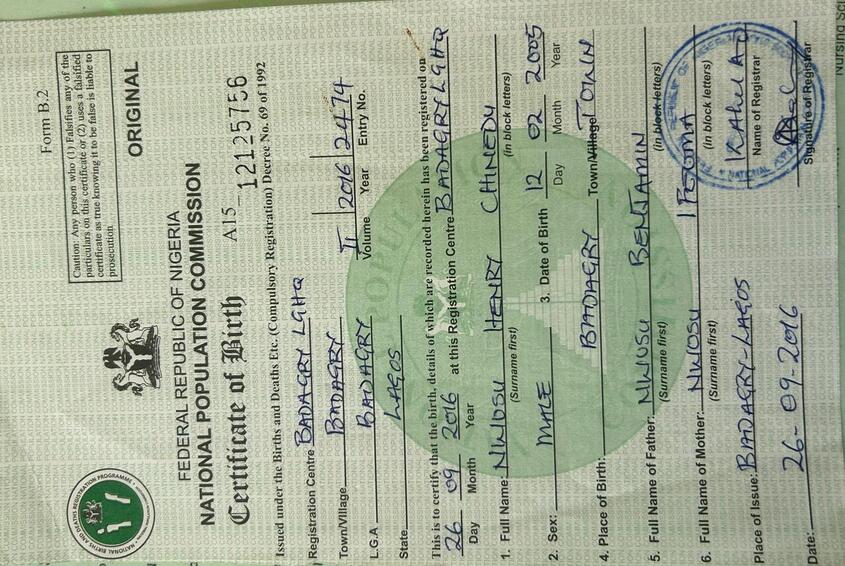 Form B.2
Caution: Any person who (1) Falsifies any of the
particulars on this certificate or (2) uses a falsified
certificate as true knowing it to be false is liable to
prosecution.
ORIGINAL
NATIONAL BIRTHS AND DEATHS REGISTRATION PROGRAMME
FEDERAL REPUBLIC OF NIGERIA
NATIONAL POPULATION COMMISSION
Certificate of Birth
A15- 12125756
Issued under the Births and Deaths Etc. (Compulsory Registration) Decree No. 69 of 1992
Registration Centre BADAGRY LGHQ
Town/Village BADAGRY II 2016 2474
Volume Year Entry No.
L.G.A BADAGRY
State LAGOS
This is to certify that the birth, details of which are recorded herein has been registered on
26 09 2016 at this Registration Centre BADAGRY LGHQ
Day Month Year
1. Full Name: NWOSU HENRY CHINEDU
(Surname first) (in block letters)
2. Sex: MALE 3. Date of Birth 12 02 2005
Day Month Year
4. Place of Birth: BADAGRY Town/Village TOWN
5. Full Name of Father: NWOSU BENJAMIN
(Surname first) (in block letters)
6. Full Name of Mother: NWOSU IFEOMA
(Surname first) (In block letters)
Place of Issue: BADAGRY-LAGOS
Name of Registrar
Date: 26-09-2016
Signature of Registrar